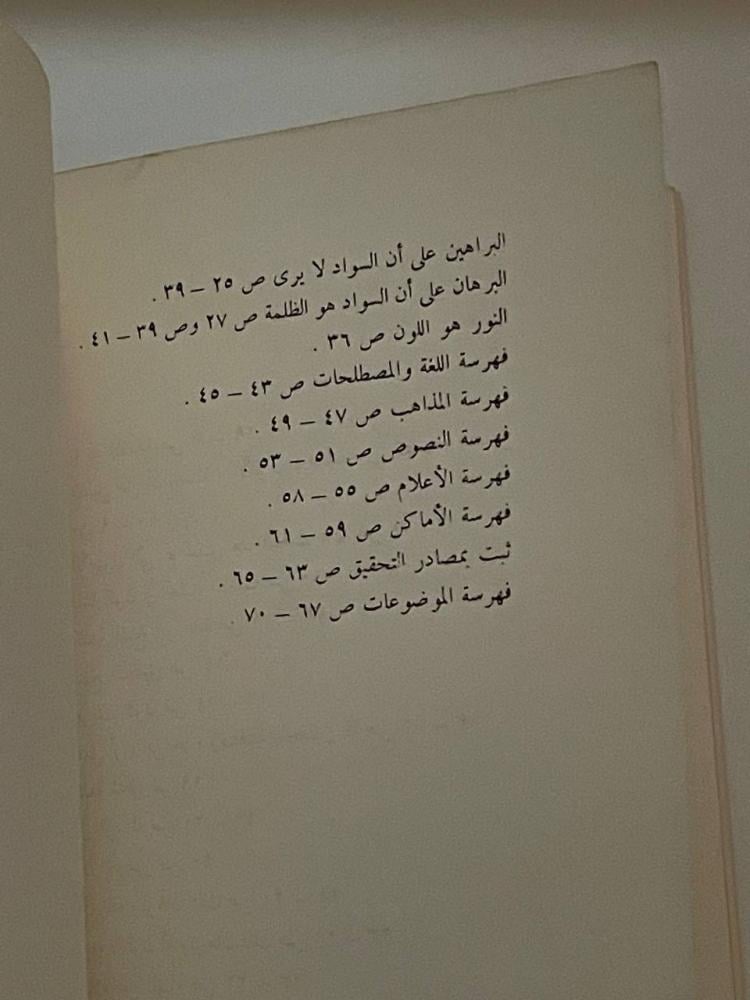 البراهين على أن السواد لا يرى ص ٢٥ – ٣٩ .
البرهان على أن السواد هو الظلمة ص ٢٧ وص ٣٩ – ٤١ .
النور هو اللون ص ٣٦ .
فهرسة اللغة والمصطلحات ص ٤٣ – ٤٥ .
فهرسة المذاهب ص ٤٧ – ٤٩ .
فهرسة النصوص ص ٥١ – ٥٣ .
فهرسة الأعلام ص ٥٥ – ٥٨ .
فهرسة الأماكن ص ٥٩ – ٦١ .
ثبت بمصادر التحقيق ص ٦٣ – ٦٥ .
فهرسة الموضوعات ص ٦٧ – ٧٠ .